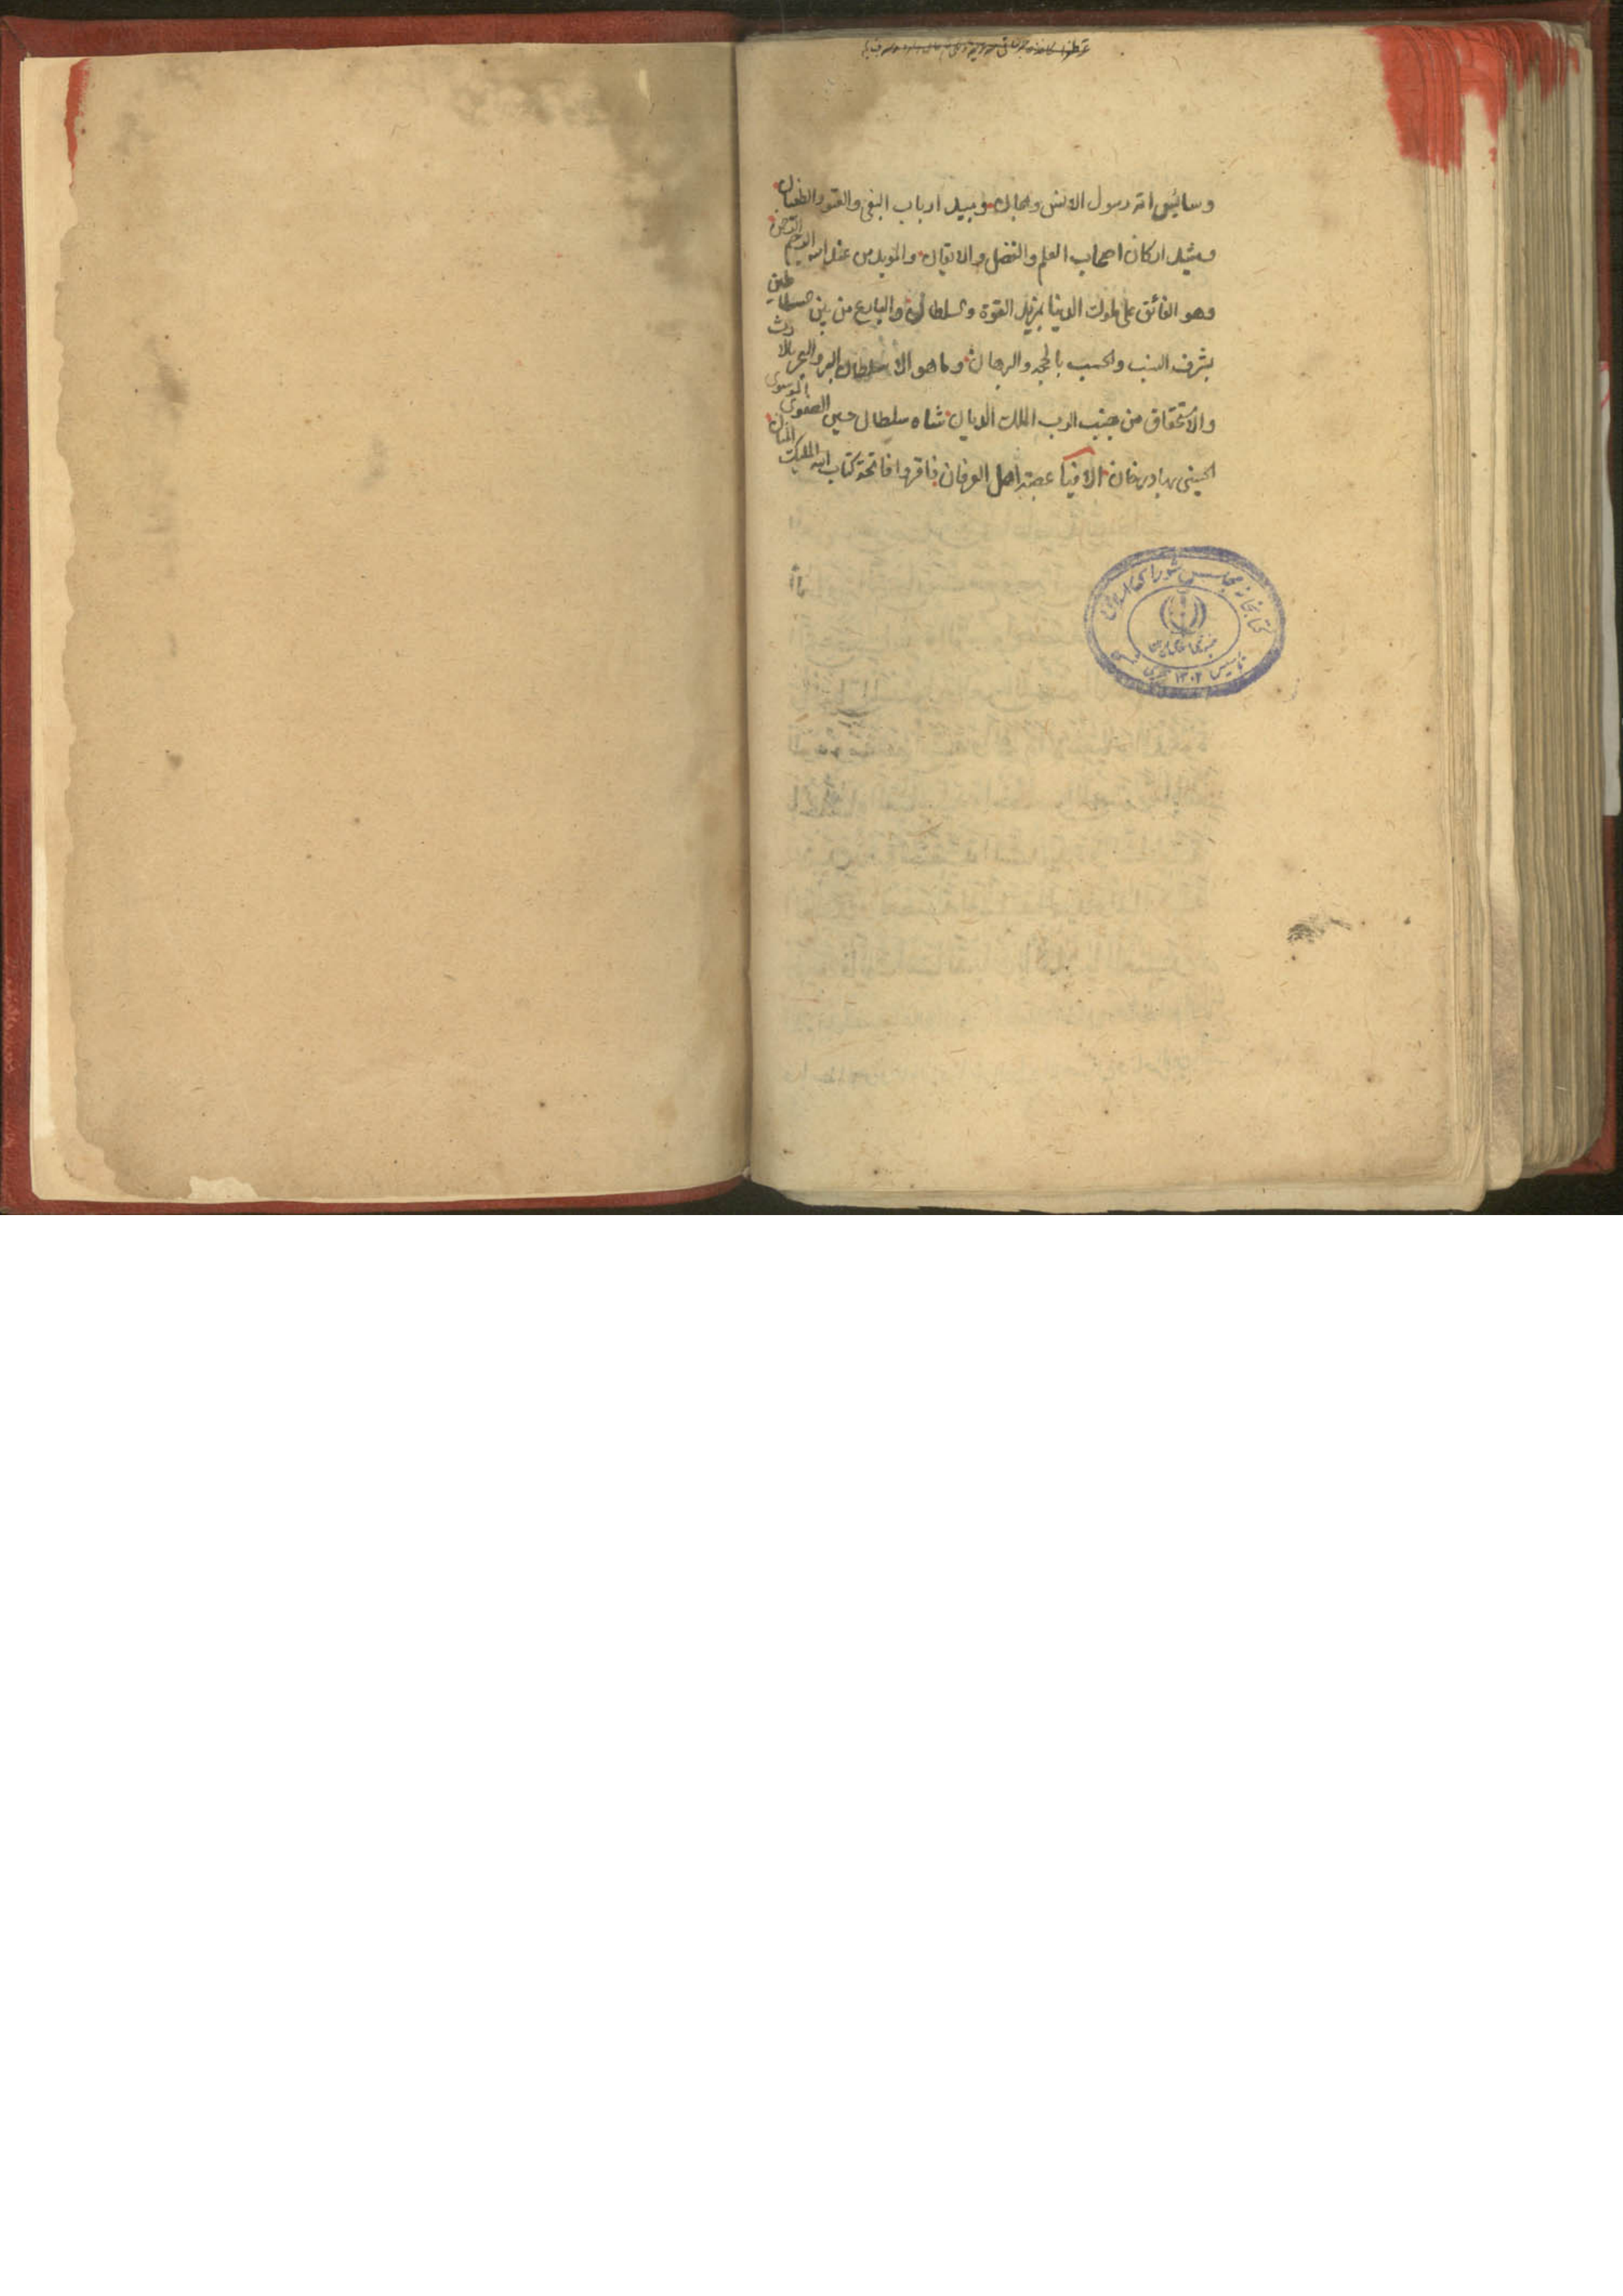 وسائس امة رسول الانس والجان ومبيد ارباب البغي والعتو والطغيان
ومشيد اركان اصحاب العلم والفضل والايقان والمويد من عند الله الرحيم الرحمن
وهو الفائق على ملوك الدنيا بمزيد القوة والسلطان والبارع من بين السلاطين
بشرف النسب والحسب بالحجة والبرهان وما هو الا سلطان البر والبحر بالارث
والاستحقاق من جنب الرب الملك الديان شاه سلطان حسين الصفوي الموسوي
الحسيني بهادر خان الا فيا عصبة اهل العرفان فاقروا فاتحة كتاب الله المليك المنان
كتابخانه مجلس شورای اسلامی
جمهوری اسلامی ایران
تاسیس ۱۳۰۲ هجری شمسی